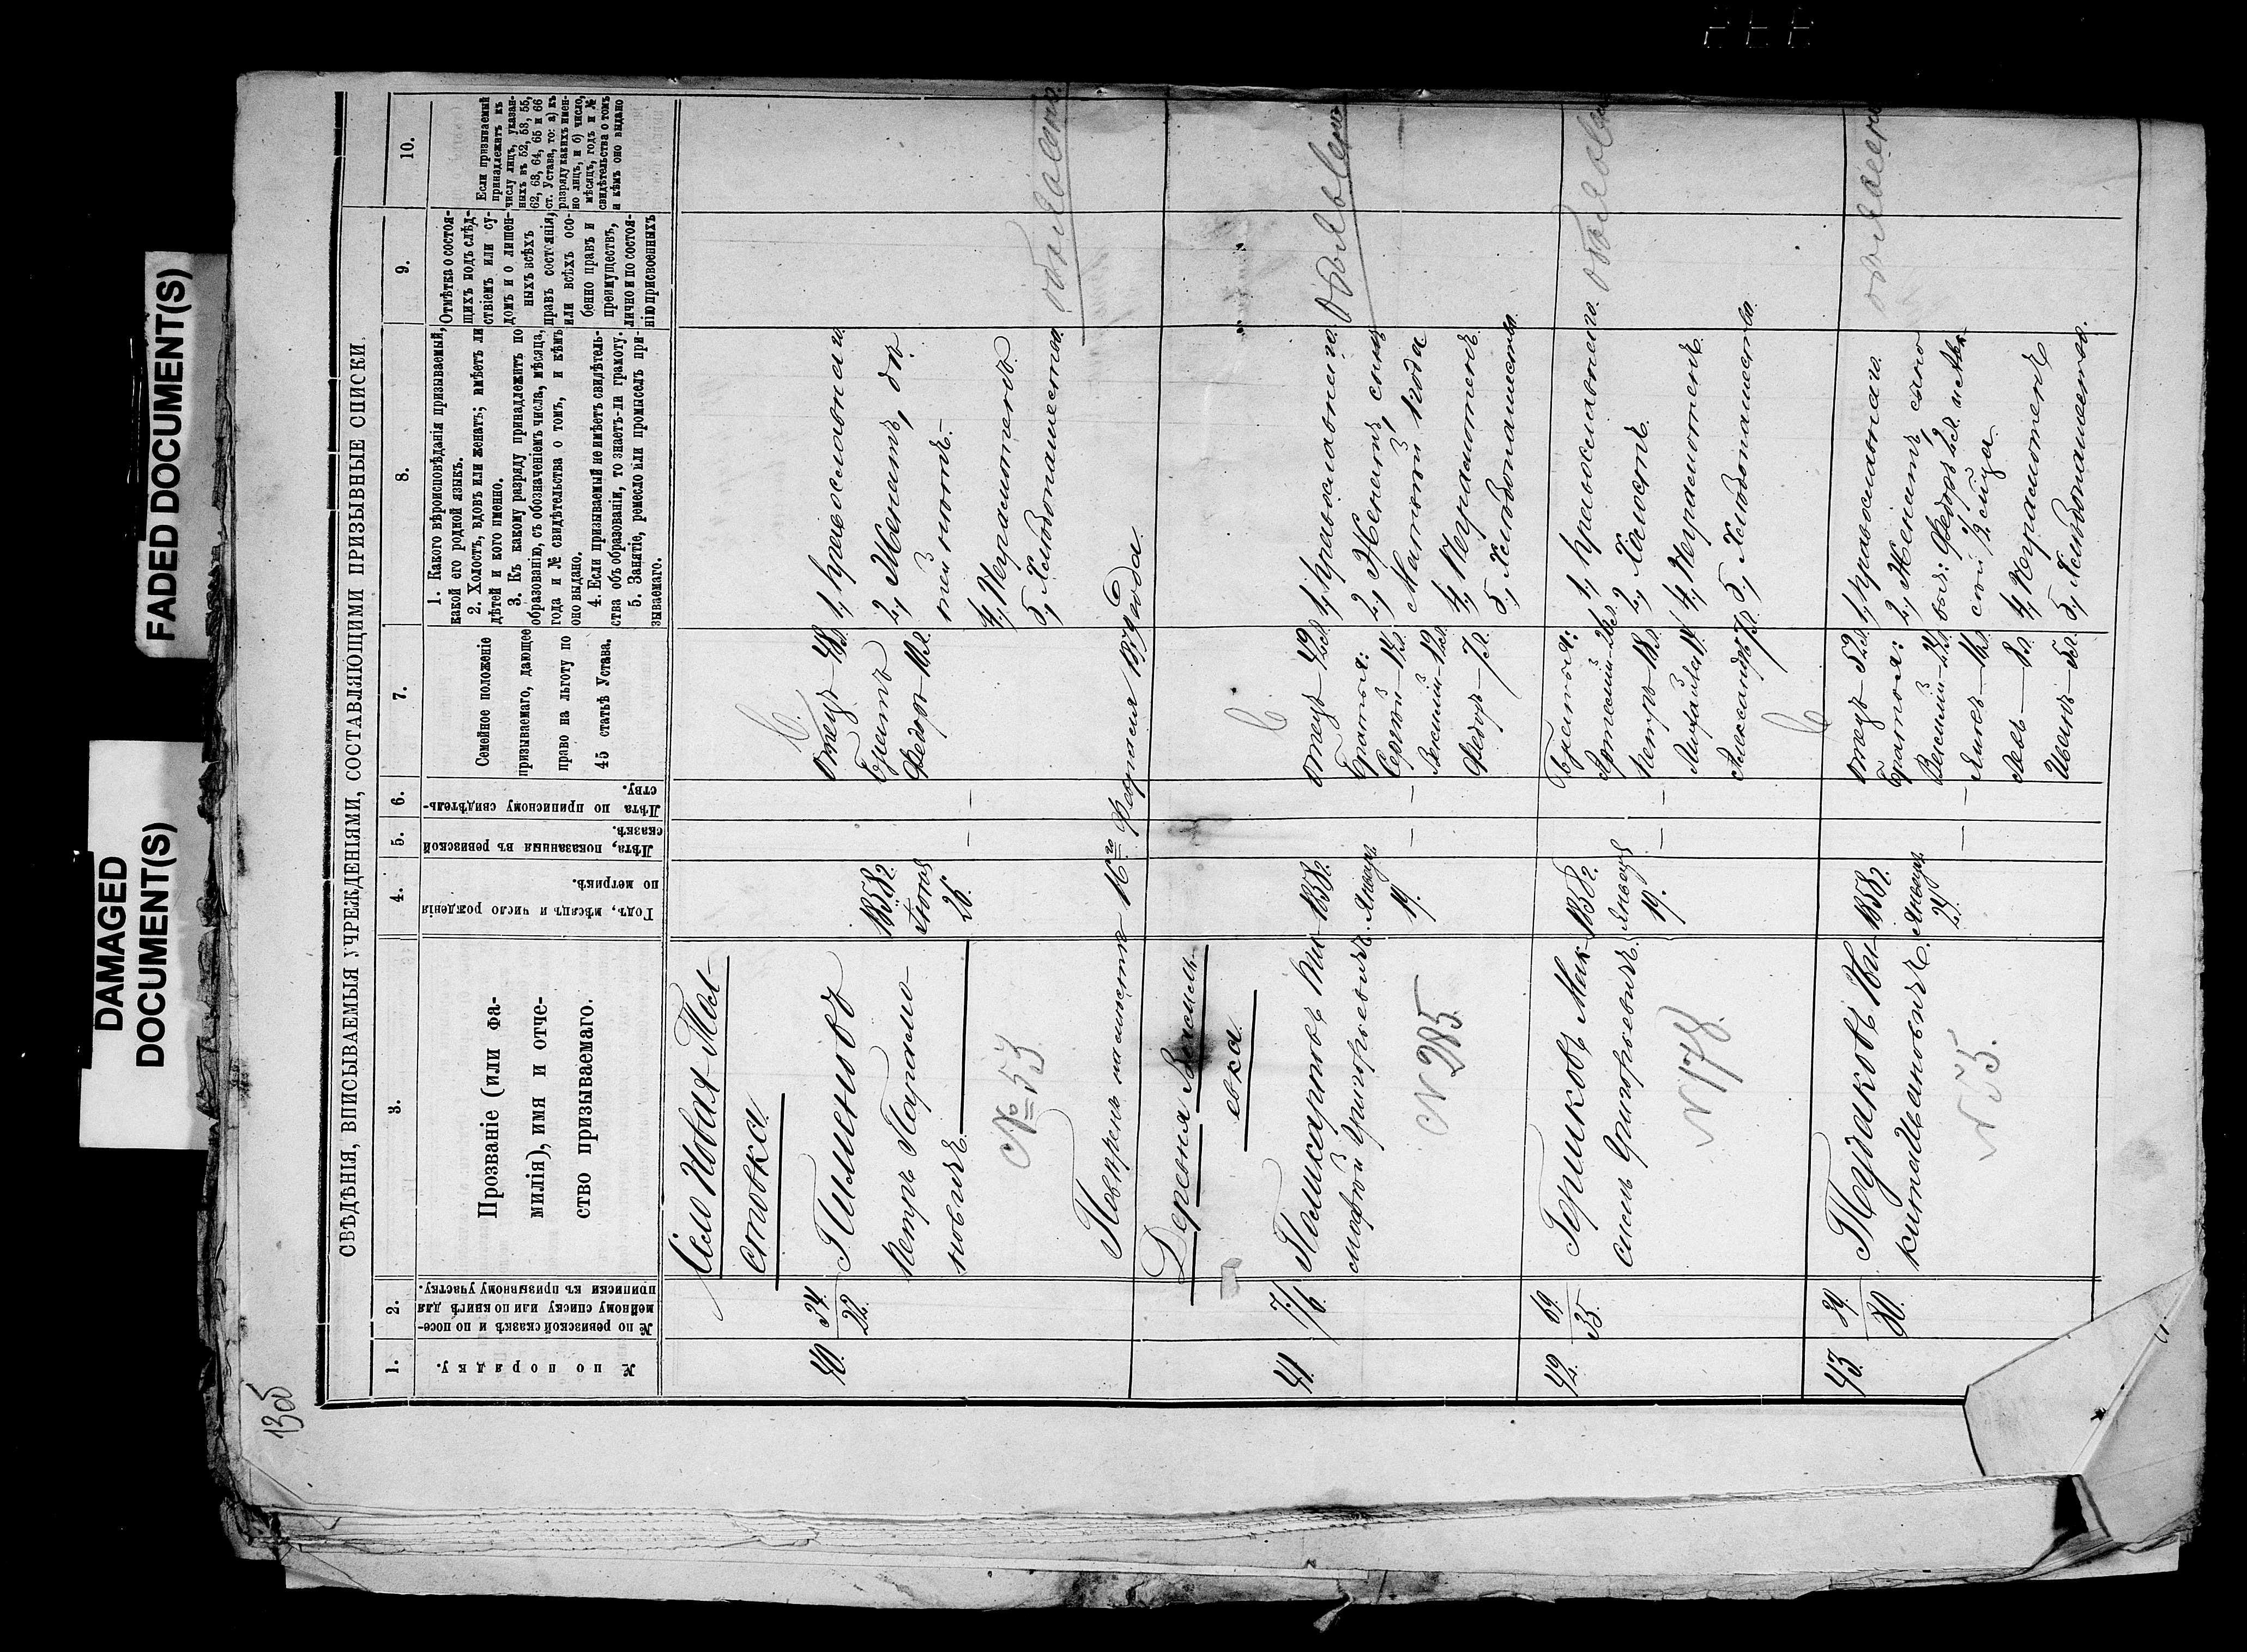 FADED DOCUMENT(S)
DAMAGED
DOCUMENT(S)
130б
СВѢДѢНІЯ, ВПИСЫВАЕМЫЯ УЧРЕЖДЕНІЯМИ, СОСТАВЛЯЮЩИМИ ПРИЗЫВНЫЕ СПИСКИ.
1.
№ по порядку.
2.
№ по ревизской сказкѣ и по посе-
мейному списку или по книгѣ для
приписки къ призывному участку.
3.
Прозваніе (или фа-
милія), имя и отче-
ство призываемаго.
4.
Годъ, мѣсяцъ и число рожденія
по метрикѣ.
5.
Лѣта, показанныя въ ревизской
сказкѣ.
6.
Лѣта по приписному свидѣтель-
ству.
7.
Семейное положеніе
призываемаго, дающее
право на льготу по
45 статьѣ Устава.
8.
1. Какого вѣроисповѣданія призываемый,
какой его родной языкъ.
2. Холостъ, вдовъ или женатъ; имѣетъ ли
дѣтей и кого именно.
3. Къ какому разряду принадлежитъ по
образованію, съ обозначеніемъ числа, мѣсяца,
года и № свидѣтельства о томъ, и кѣмъ
оно выдано.
4. Если призываемый не имѣетъ свидѣтель-
ства объ образованіи, то знаетъ-ли грамоту.
5. Занятіе, ремесло или промыселъ при-
зываемаго.
9.
Отмѣтка о состоя-
щихъ подъ слѣд-
ствіемъ или су-
домъ и о лишен-
ныхъ всѣхъ
правъ состоянія,
или всѣхъ осо-
бенно правъ и
преимуществъ,
лично и по состоя-
нію присвоенныхъ
10.
Если призываемый
принадлежитъ къ
числу лицъ, указан-
ныхъ въ 52, 53, 55,
62, 63, 64, 65 и 66
ст. Устава, то: а) къ
разряду какихъ имен-
но лицъ, и б) число,
мѣсяцъ, годъ и №
свидѣтельства о томъ
и кѣмъ оно выдано
Село Новая-Тол-
стовка
40.
34.
22.
Пименовъ
Петръ Парѳемо-
новичъ
№ 53
1858 г.
Іюня
26.
отецъ - 48 л.
Братъ
Федоръ - 10 л.
1, Православнаго.
2, Женатъ, дѣ-
тей нѣтъ.
4, Неграмотенъ.
5, Хлѣбопашество.
Повѣренъ на мѣстѣ 16го Февраля 1879 года.
Деревня
евка.
41.
7.
6.
Пошкарновъ
Григорьевичъ.
№ 285
1858 г.
Январь
19.
отецъ - 42 л.
Братья:
Сергѣй - 14 л.
Василій - 12 л.
Федоръ - 7 л.
1, Православнаго.
2, Женатъ, сынъ
Матвей 1 года
4, Неграмотенъ.
5, Хлебопашество.
42.
69.
35.
Горшковъ Мак-
симъ Григорьевичъ.
№ 178.
1858 г.
Январь
19.
Братья:
Артемій - 26 л.
Петръ - 18 л.
Михаила 14
Александръ 7 л.
1, Православнаго.
2, Холостъ.
4, Неграмотенъ.
5, Хлебопашество.
43.
39.
30.
Пудаковъ Ни-
кита Ивановичъ.
№ 5.
1858 г.
Январь
27.
отецъ - 52 л.
Братья:
Василій - 22 л.
Яковъ - 16 л.
Левъ - 8 л.
Иванъ - 5 л.
1, Православнаго.
2, Женатъ, сыно
вья: Федоръ 2 л. и Алк-
сѣй 1/2 мѣсяца
4, Неграмотенъ
5, Хлебопашество.